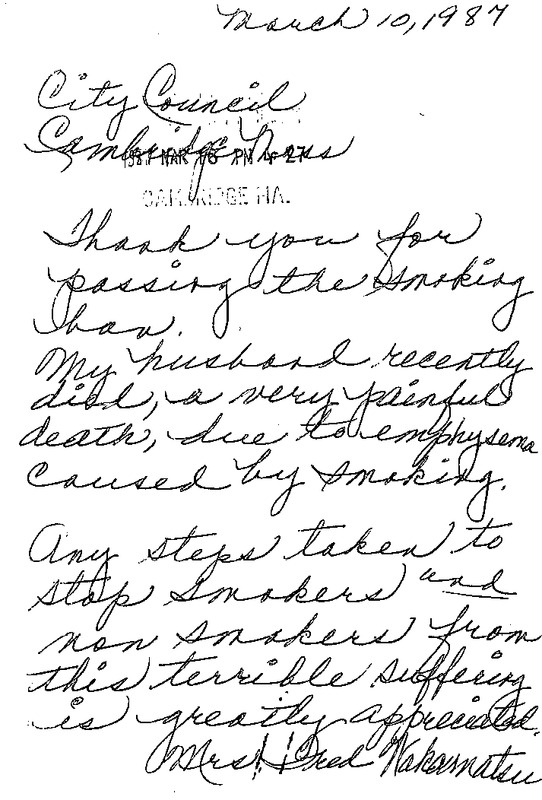 March 10, 1987
City Council
Cambridge, Mass
1987 MAR 16 PM 4 27
CAMBRIDGE MA.
Thank you for
passing the smoking
ban.
My husband recently
died, a very painful
death, due to emphysema
caused by smoking.
Any steps taken to
stop smokers and
non smokers from
this terrible suffering
is greatly appreciated.
Mrs. Fred Nakamatsu